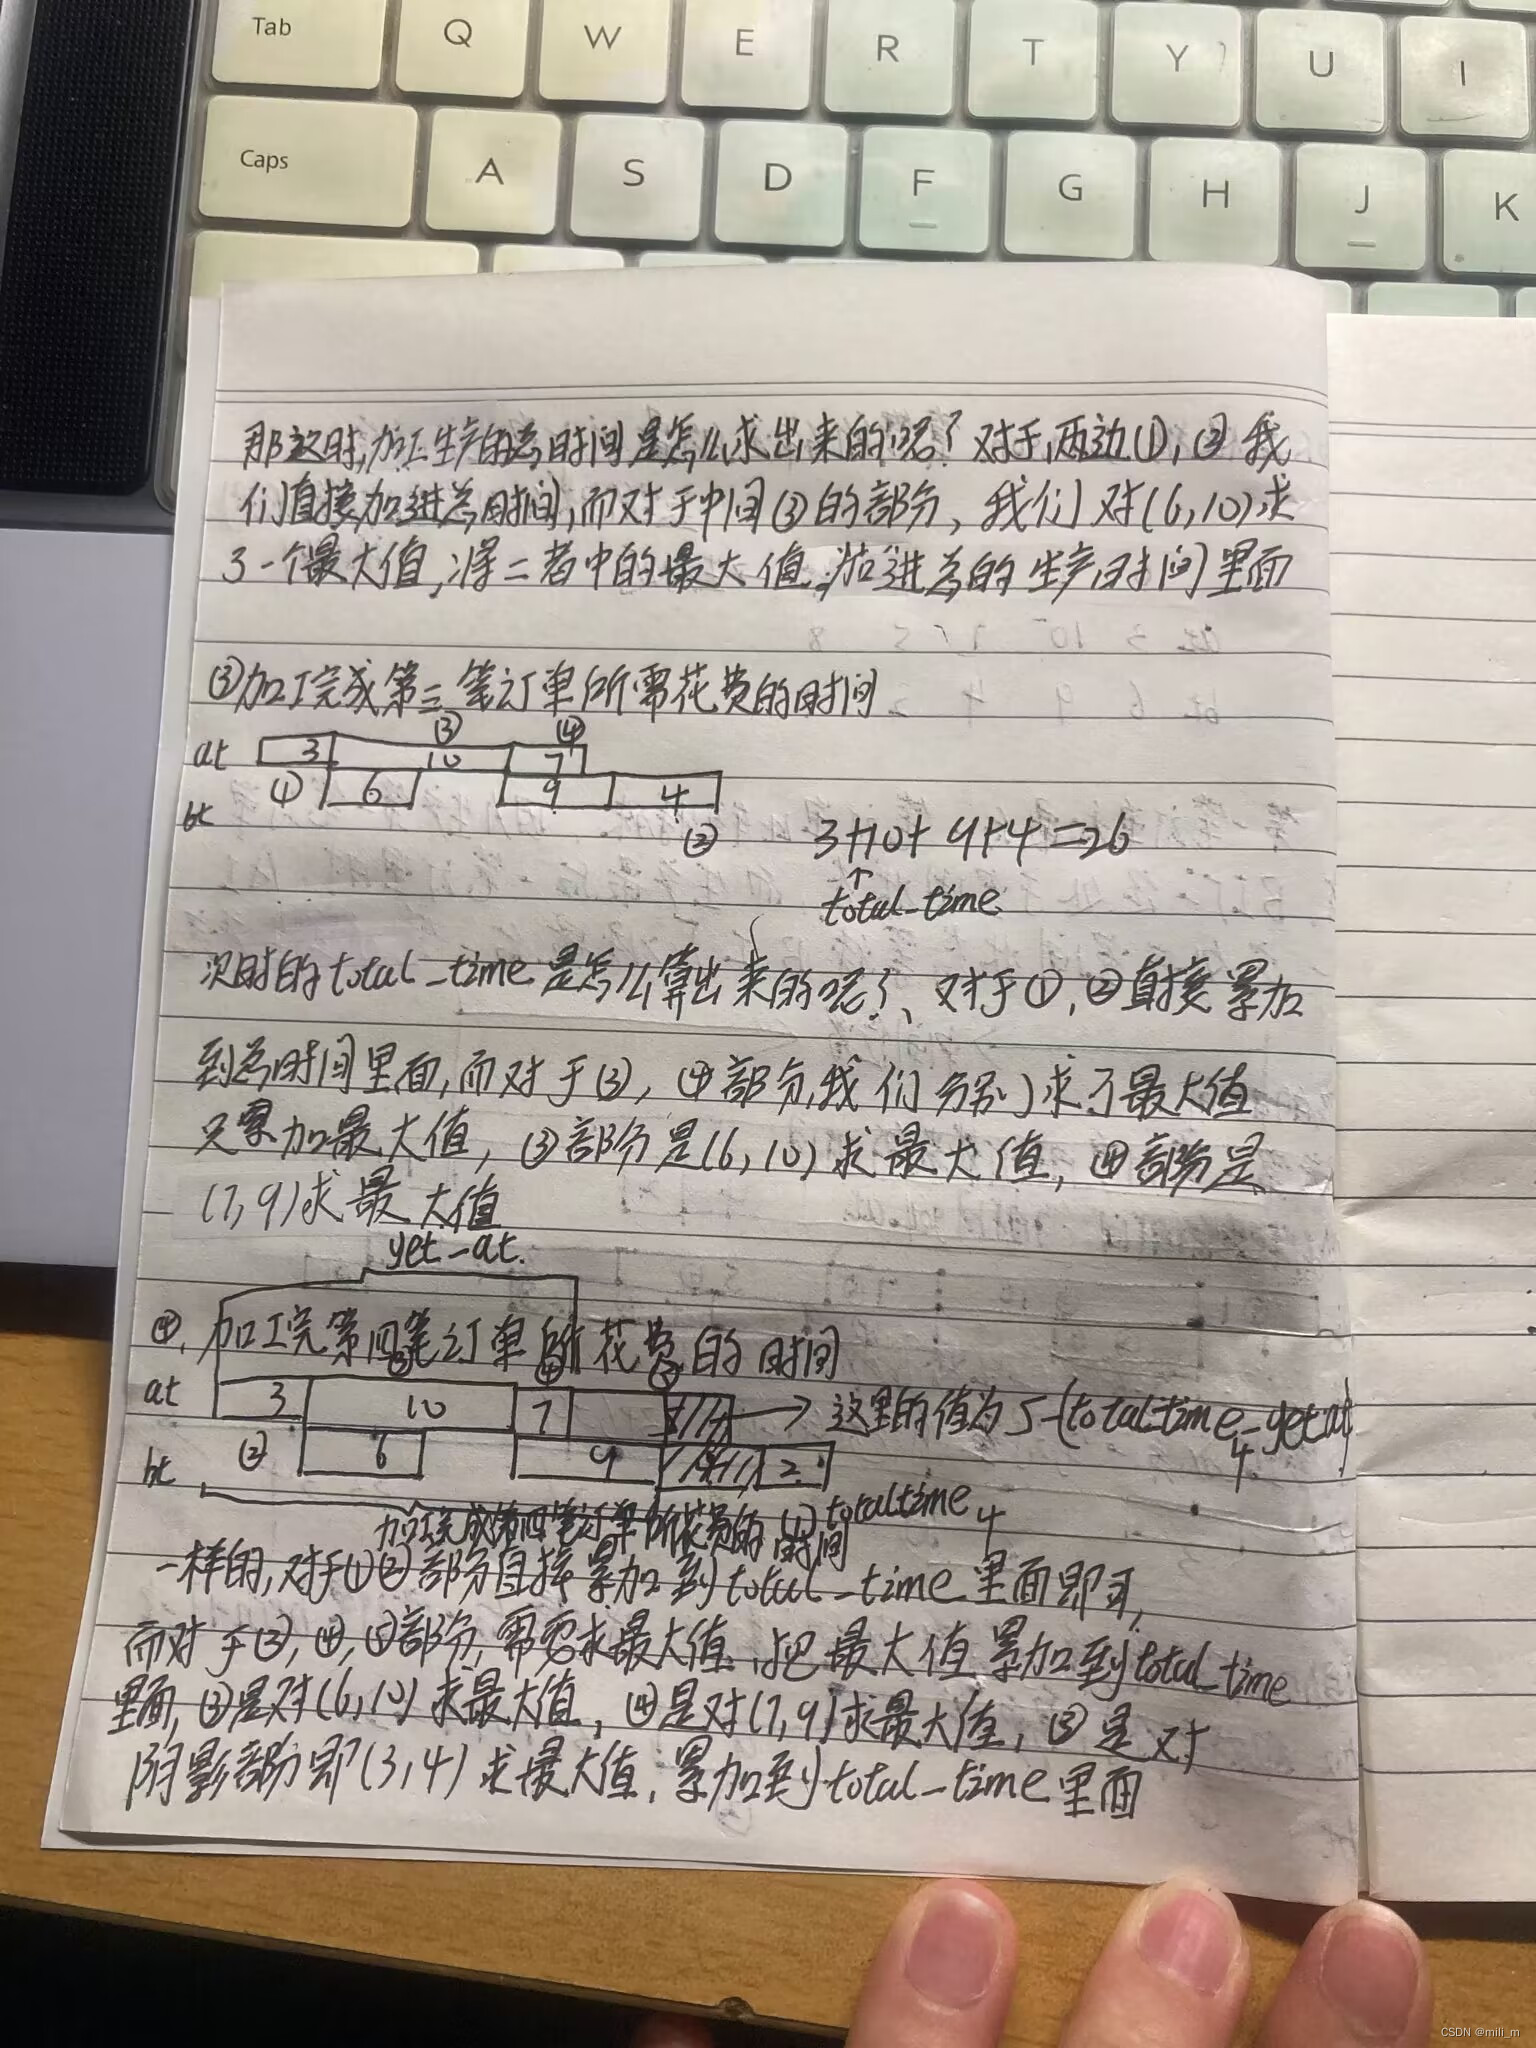 Tab Q W E R T Y U I
Caps A S D F G H J K
那这时,加工生产的总时间是怎么求出来的呢?对于两边①,②我
们直接加进总时间,而对于中间③的部分,我们对(6,10)求
了一个最大值,将二者中的最大值加进总的生产时间里面
③加工完成第三笔订单所需花费的时间
③ ④
at 3 10 7
① 6 9 4
bt
②
3+10+9+4=26
↑
total_time
次时的total_time是怎么算出来的呢?、对于①,②直接累加
到总时间里面,而对于③,④部分,我们分别求了最大值
只累加最大值,③部分是(6,10)求最大值,④部分是
(7,9)求最大值
yet_at.
④,加工完第四笔订单所花费的时间
③ ④ ⑤
at 3 10 7 → 这里的值为5-(total_time4-yetat)
bt ② 6 9 4 2
加工完成第四笔订单所花费的时间 ① totaltime4
一样的,对于①②部分直接累加到total_time里面即可,
而对于③,④,⑤部分,需要求最大值,把最大值累加到total_time
里面,③是对(6,10)求最大值,④是对(7,9)求最大值,⑤是对
阴影部分即(3,4)求最大值,累加到total_time里面
CSDN @mili_m